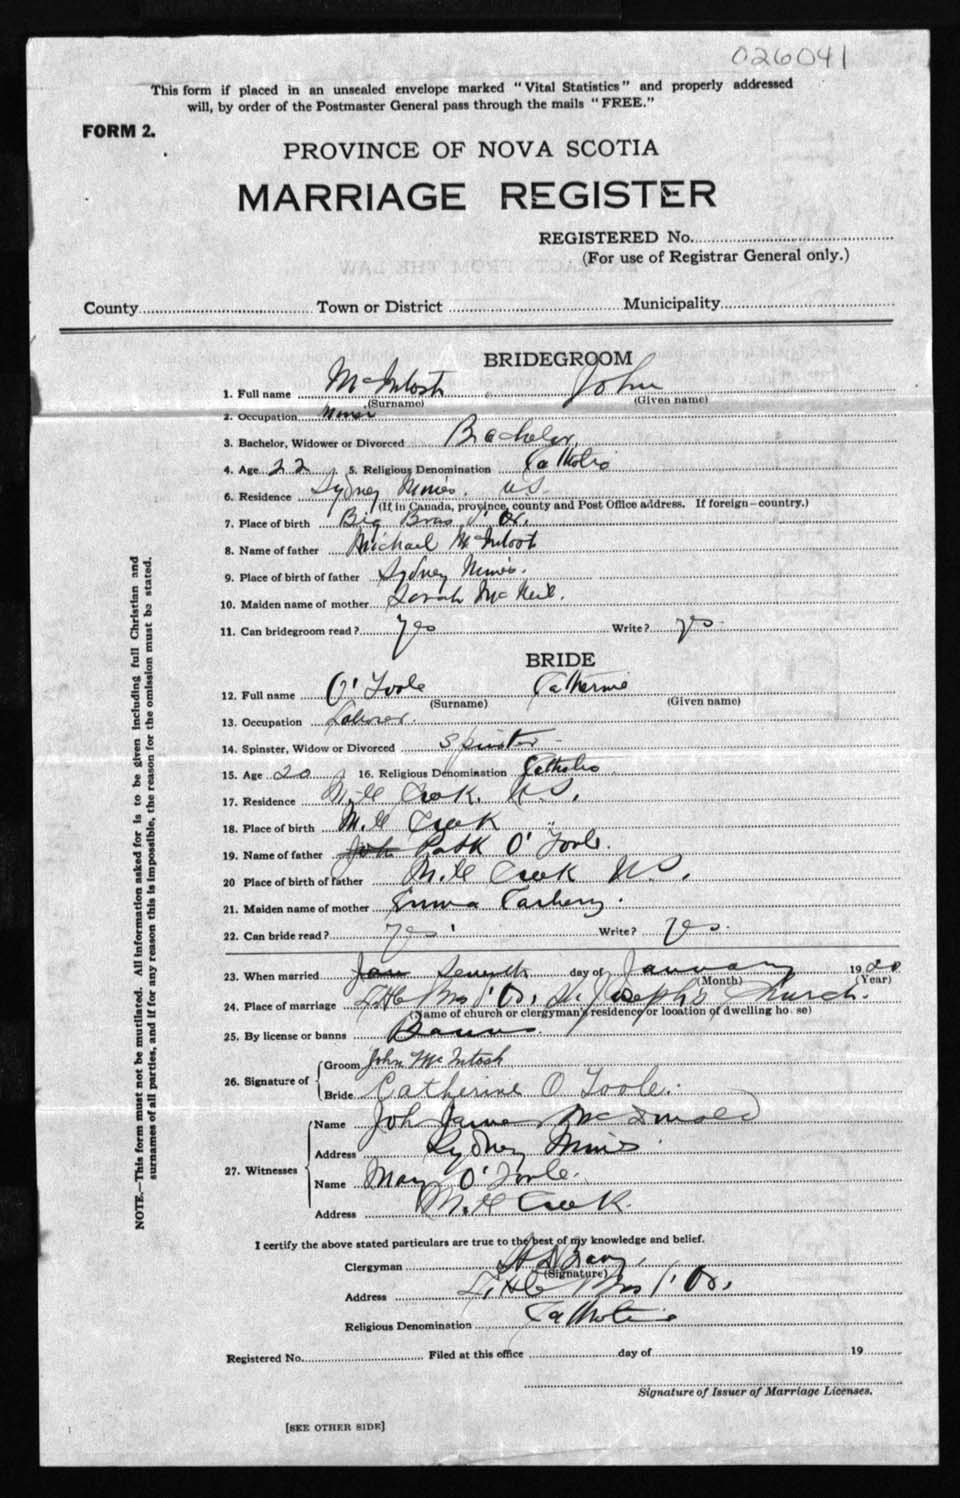 026041
This form if placed in an unsealed envelope marked "Vital Statistics" and properly addressed
will, by order of the Postmaster General pass through the mails "FREE."
FORM 2.
PROVINCE OF NOVA SCOTIA
MARRIAGE REGISTER
REGISTERED No.
(For use of Registrar General only.)
County Town or District Municipality
BRIDEGROOM
1. Full name McIntosh John
(Surname) (Given name)
2. Occupation Miner
3. Bachelor, Widower or Divorced Bachelor,
4. Age 22 5. Religious Denomination Catholic
6. Residence Sydney Mines. N.S.
(If in Canada, province, county and Post Office address. If foreign—country.)
7. Place of birth Big Bras d'Or.
8. Name of father Michael McIntosh
9. Place of birth of father Sydney Mines.
10. Maiden name of mother Sarah McNeil.
11. Can bridegroom read? yes Write? yes.
BRIDE
12. Full name O'Toole Catherine
(Surname) (Given name)
13. Occupation
14. Spinster, Widow or Divorced Spinster
15. Age 20 16. Religious Denomination Catholic
17. Residence Mill Creek. N.S.
18. Place of birth Mill Creek "
19. Name of father Patk O'Toole.
20 Place of birth of father Mill Creek N.S.
21. Maiden name of mother Emma
22. Can bride read? yes Write? yes.
23. When married Jan Seventh day of January 1920
(Month) (Year)
24. Place of marriage Little Bras d'Or, St. Joseph's Church.
(Name of church or clergyman's residence or location of dwelling house)
25. By license or banns Banns
26. Signature of Groom John McIntosh
Bride Catherine O Toole.
27. Witnesses Name John James McDonald
Address Sydney Mines.
Name Mary O'Toole.
Address Mill Creek.
I certify the above stated particulars are true to the best of my knowledge and belief.
Clergyman
(Signature)
Address Little Bras d'Or,
Religious Denomination Catholic
Registered No. Filed at this office day of 19
Signature of Issuer of Marriage Licenses.
[SEE OTHER SIDE]
NOTE.—This form must not be mutilated. All information asked for is to be given including full Christian and
surnames of all parties, and if for any reason this is impossible, the reason for the omission must be stated.